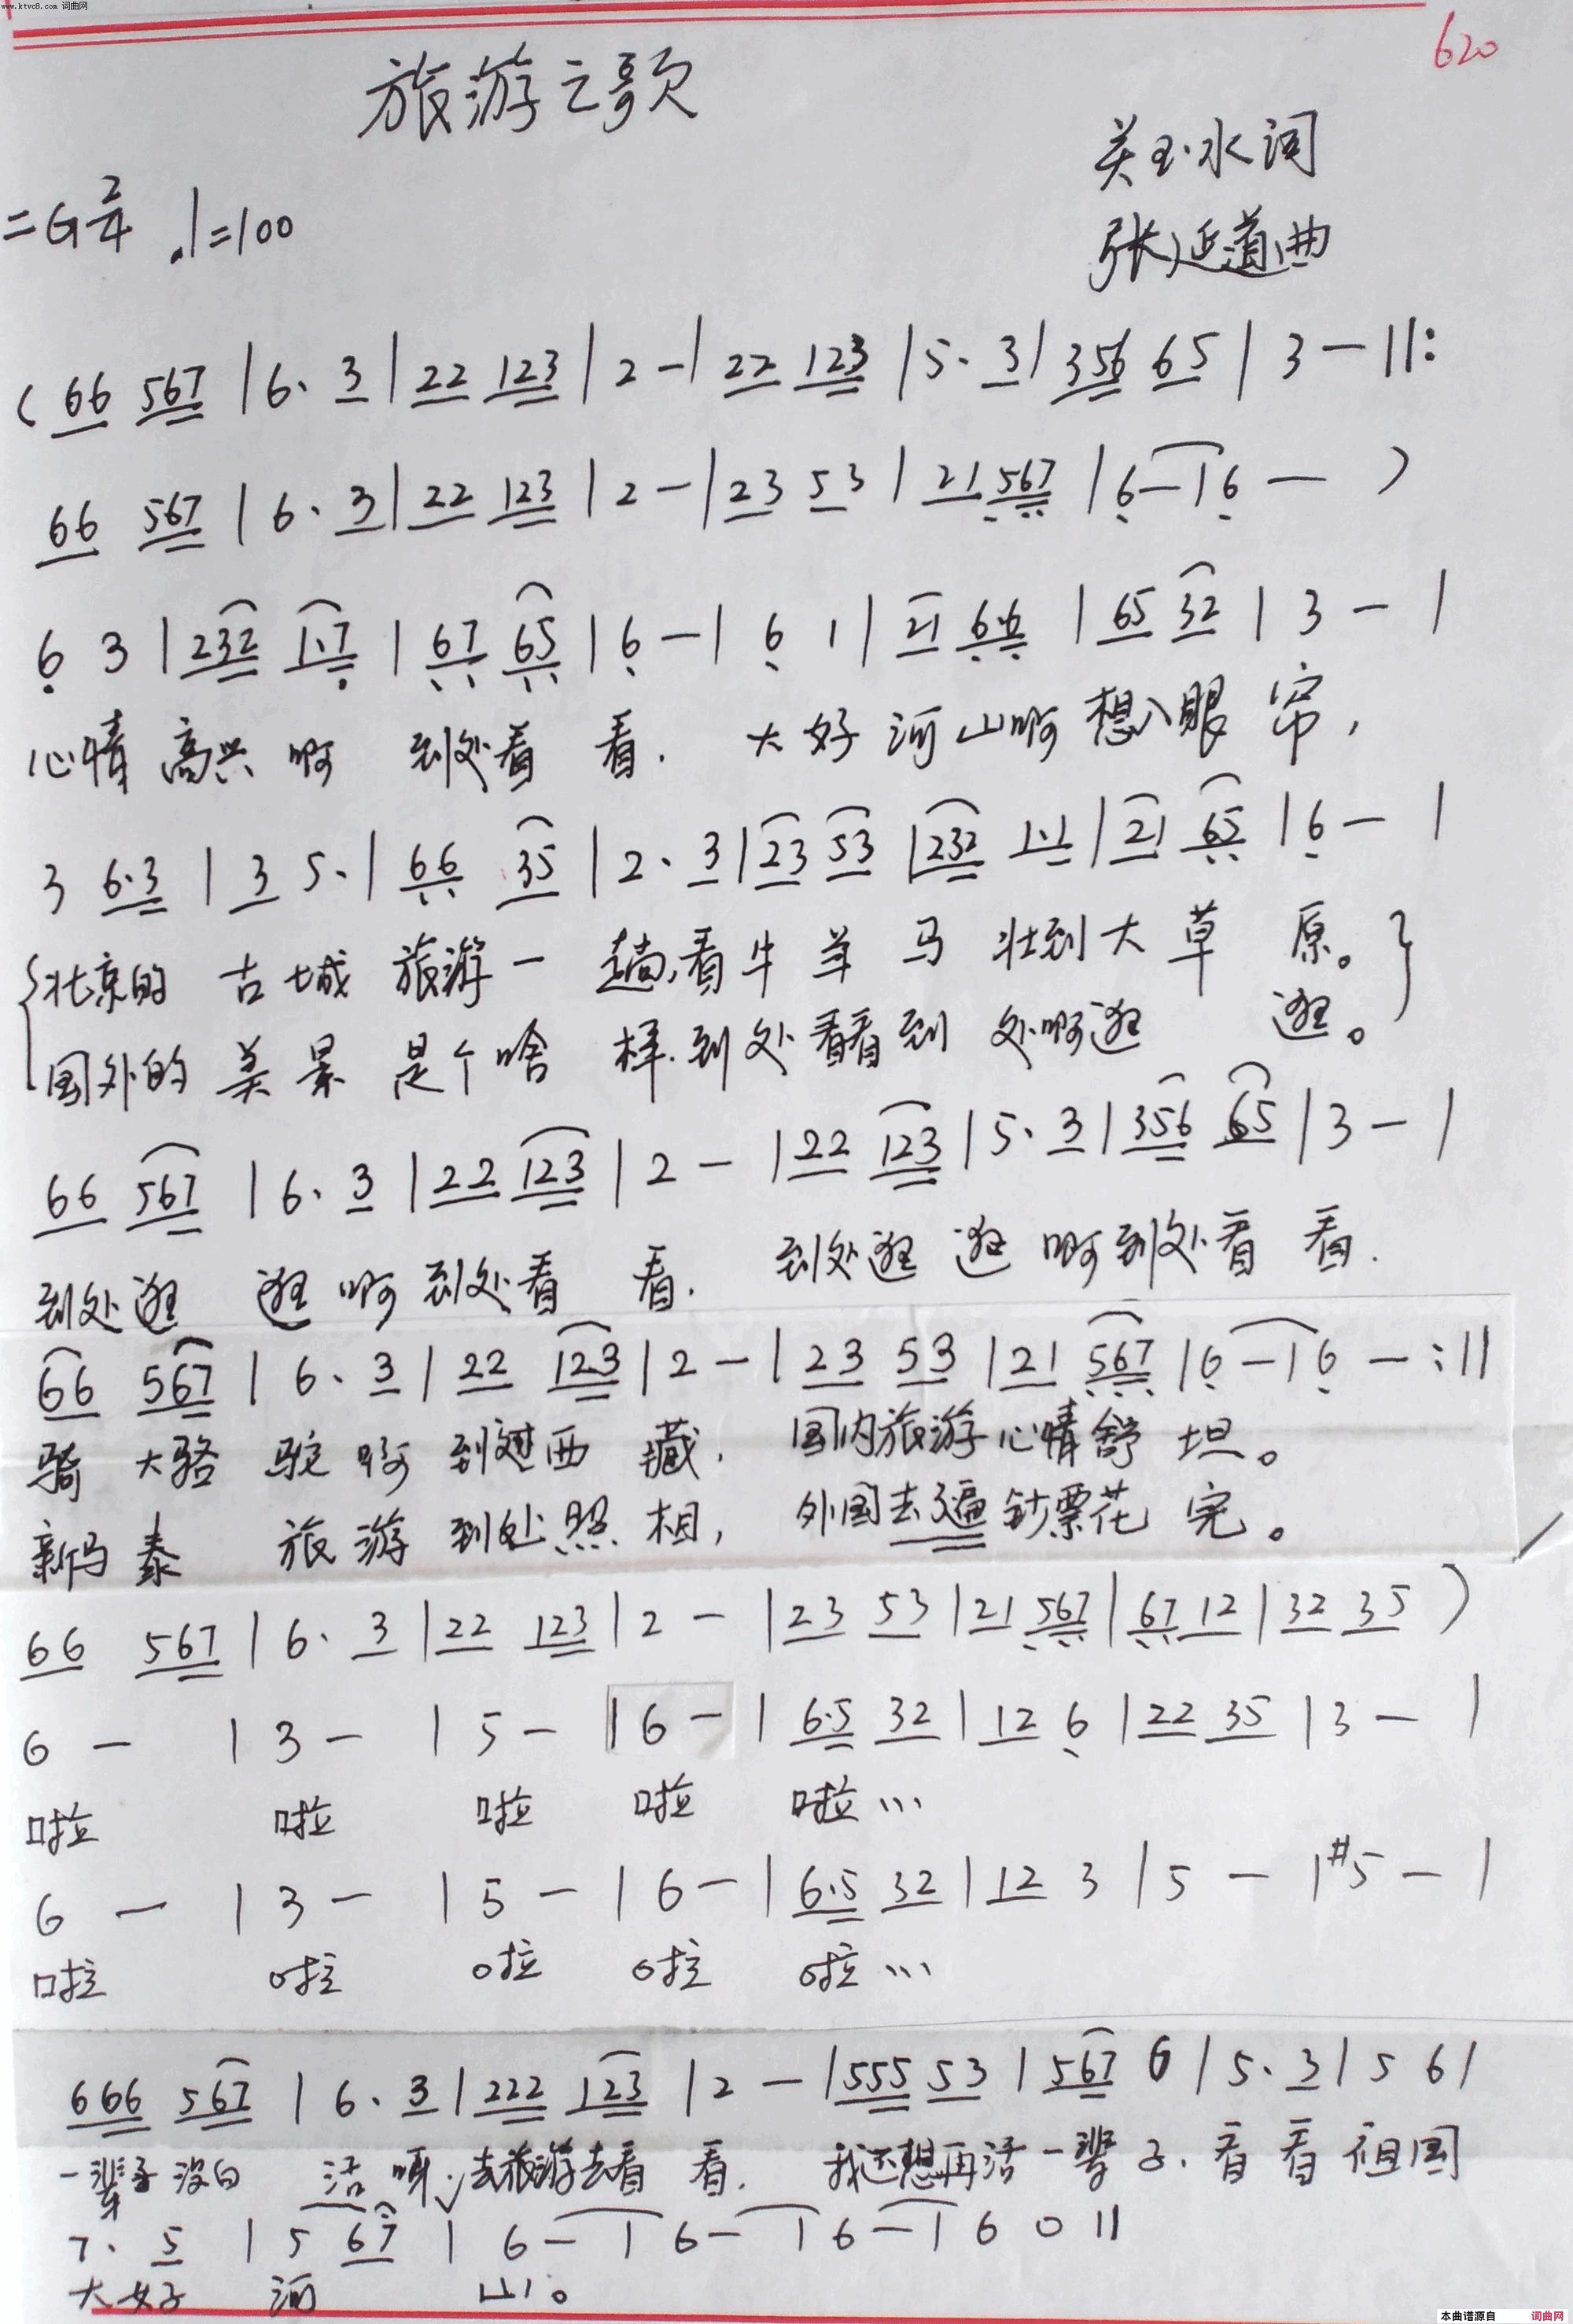 www.ktvc8.com 词曲网
620
旅游之歌
关玉水词
=G 2/4 ♩=100
张延道曲
( 66 567 | 6· 3 | 22 123 | 2 - | 22 123 | 5· 3 | 356 65 | 3 - ||:
66 567 | 6· 3 | 22 123 | 2 - | 23 53 | 21 567 | 6 - | 6 - )
6 3 | 232 1·7 | 67 65 | 6 - | 6 1 | 21 6·6 | 65 32 | 3 - |
心情 高兴 啊 到处看 看. 大好 河山啊 想入眼 帘,
3 6·3 | 3 5· | 66 35 | 2· 3 | 23 53 | 232 1·1 | 21 65 | 6 - |
北京的 古城 旅游一 趟,看牛羊 马 壮到大草 原。
国外的 美景 是个啥 样.到处看看到 处啊逛 逛。
66 567 | 6· 3 | 22 123 | 2 - | 22 123 | 5· 3 | 356 65 | 3 - |
到处逛 逛啊到处看 看. 到处逛 逛 啊到处看 看.
66 567 | 6· 3 | 22 123 | 2 - | 23 53 | 21 567 | 6 - | 6 - :||
骑 大骆 驼 啊 到趟西 藏. 国内旅游心情舒 坦。
新马泰 旅游 到处照 相, 外国去逼钞票花 完。
66 567 | 6· 3 | 22 123 | 2 - | 23 53 | 21 567 | 67 12 | 32 35 )
6 - | 3 - | 5 - | 6 - | 6·5 32 | 12 6 | 22 35 | 3 - |
啦 啦 啦 啦 啦…
6 - | 3 - | 5 - | 6 - | 6·5 32 | 12 3 | 5 - | #5 - |
啦 啦 啦 啦 啦…
666 567 | 6· 3 | 222 123 | 2 - | 555 53 | 567 6 | 5· 3 | 5 6 |
一辈子没白 活 啊去旅游去看 看. 我还想再活一辈子.看看祖国
7· 5 | 5 67 | 6 - | 6 - | 6 - | 6 0 ||
大好 河 山。
本曲谱源自 词曲网